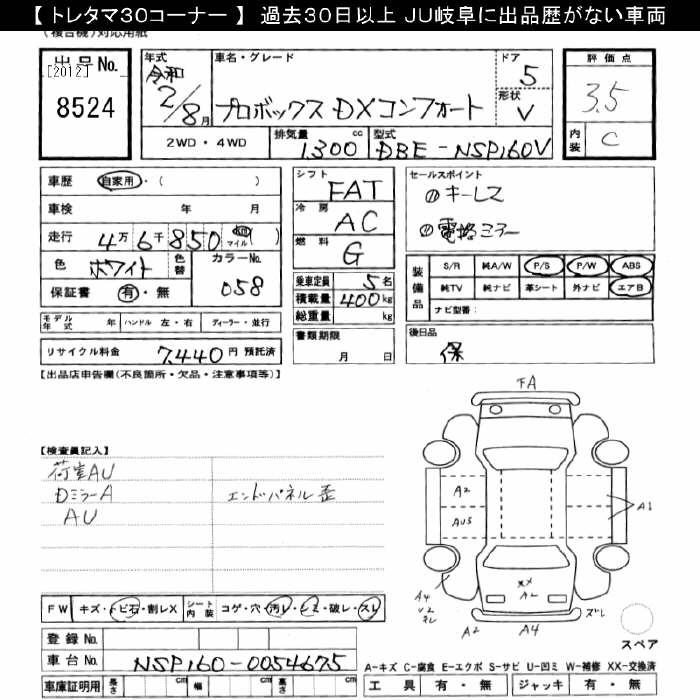 【 トレタマ30コーナー 】 過去30日以上 JU岐阜に出品歴がない車両
(複合機)対応用紙
出品No.
[2012]
8524
年式
令和
2/8月
車名・グレード
プロボックス DXコンフォート
ドア
5
形状
V
評価点
3.5
内装
C
2WD・4WD
排気量
1300
cc
型式
DBE-NSP160V
車歴
自家用・( )
車検 年 月
走行 4万6千850 km マイル( )
色 ホワイト
色替
カラーNo.
058
保証書 有・無
シフト
FAT
冷房
AC
燃料
G
乗車定員 5名
積載量 400kg
総重量 kg
セールスポイント
① キーレス
② 電格ミラー
装備品
S/R 純A/W P/S P/W ABS
純TV 純ナビ 革シート 外ナビ エアB
ナビ型番:
モデル年式 年 ハンドル 左・右 ディーラー・並行
リサイクル料金 7,440円 預託済
書類期限
月 日
後日品
保
【出品店申告欄(不良箇所・欠品・注意事項等)】
【検査員記入】
荷室AU
DミラーA
AU
エンドパネル歪
FA
A2
AUS
A1
XX
A2
A4
ズレ
A2
A4
ズレ
スペア
FW キズ・トビ石・割レX
シート内装
コゲ・穴・汚レ・シミ・破レ・スレ
登録No.
車台No. NSP160-0054675
車庫証明用 長さ cm 幅 cm 高さ cm
A-キズ C-腐食 E-エクボ S-サビ U-凹ミ W-補修 XX-交換済
工具 有・無 ジャッキ 有・無